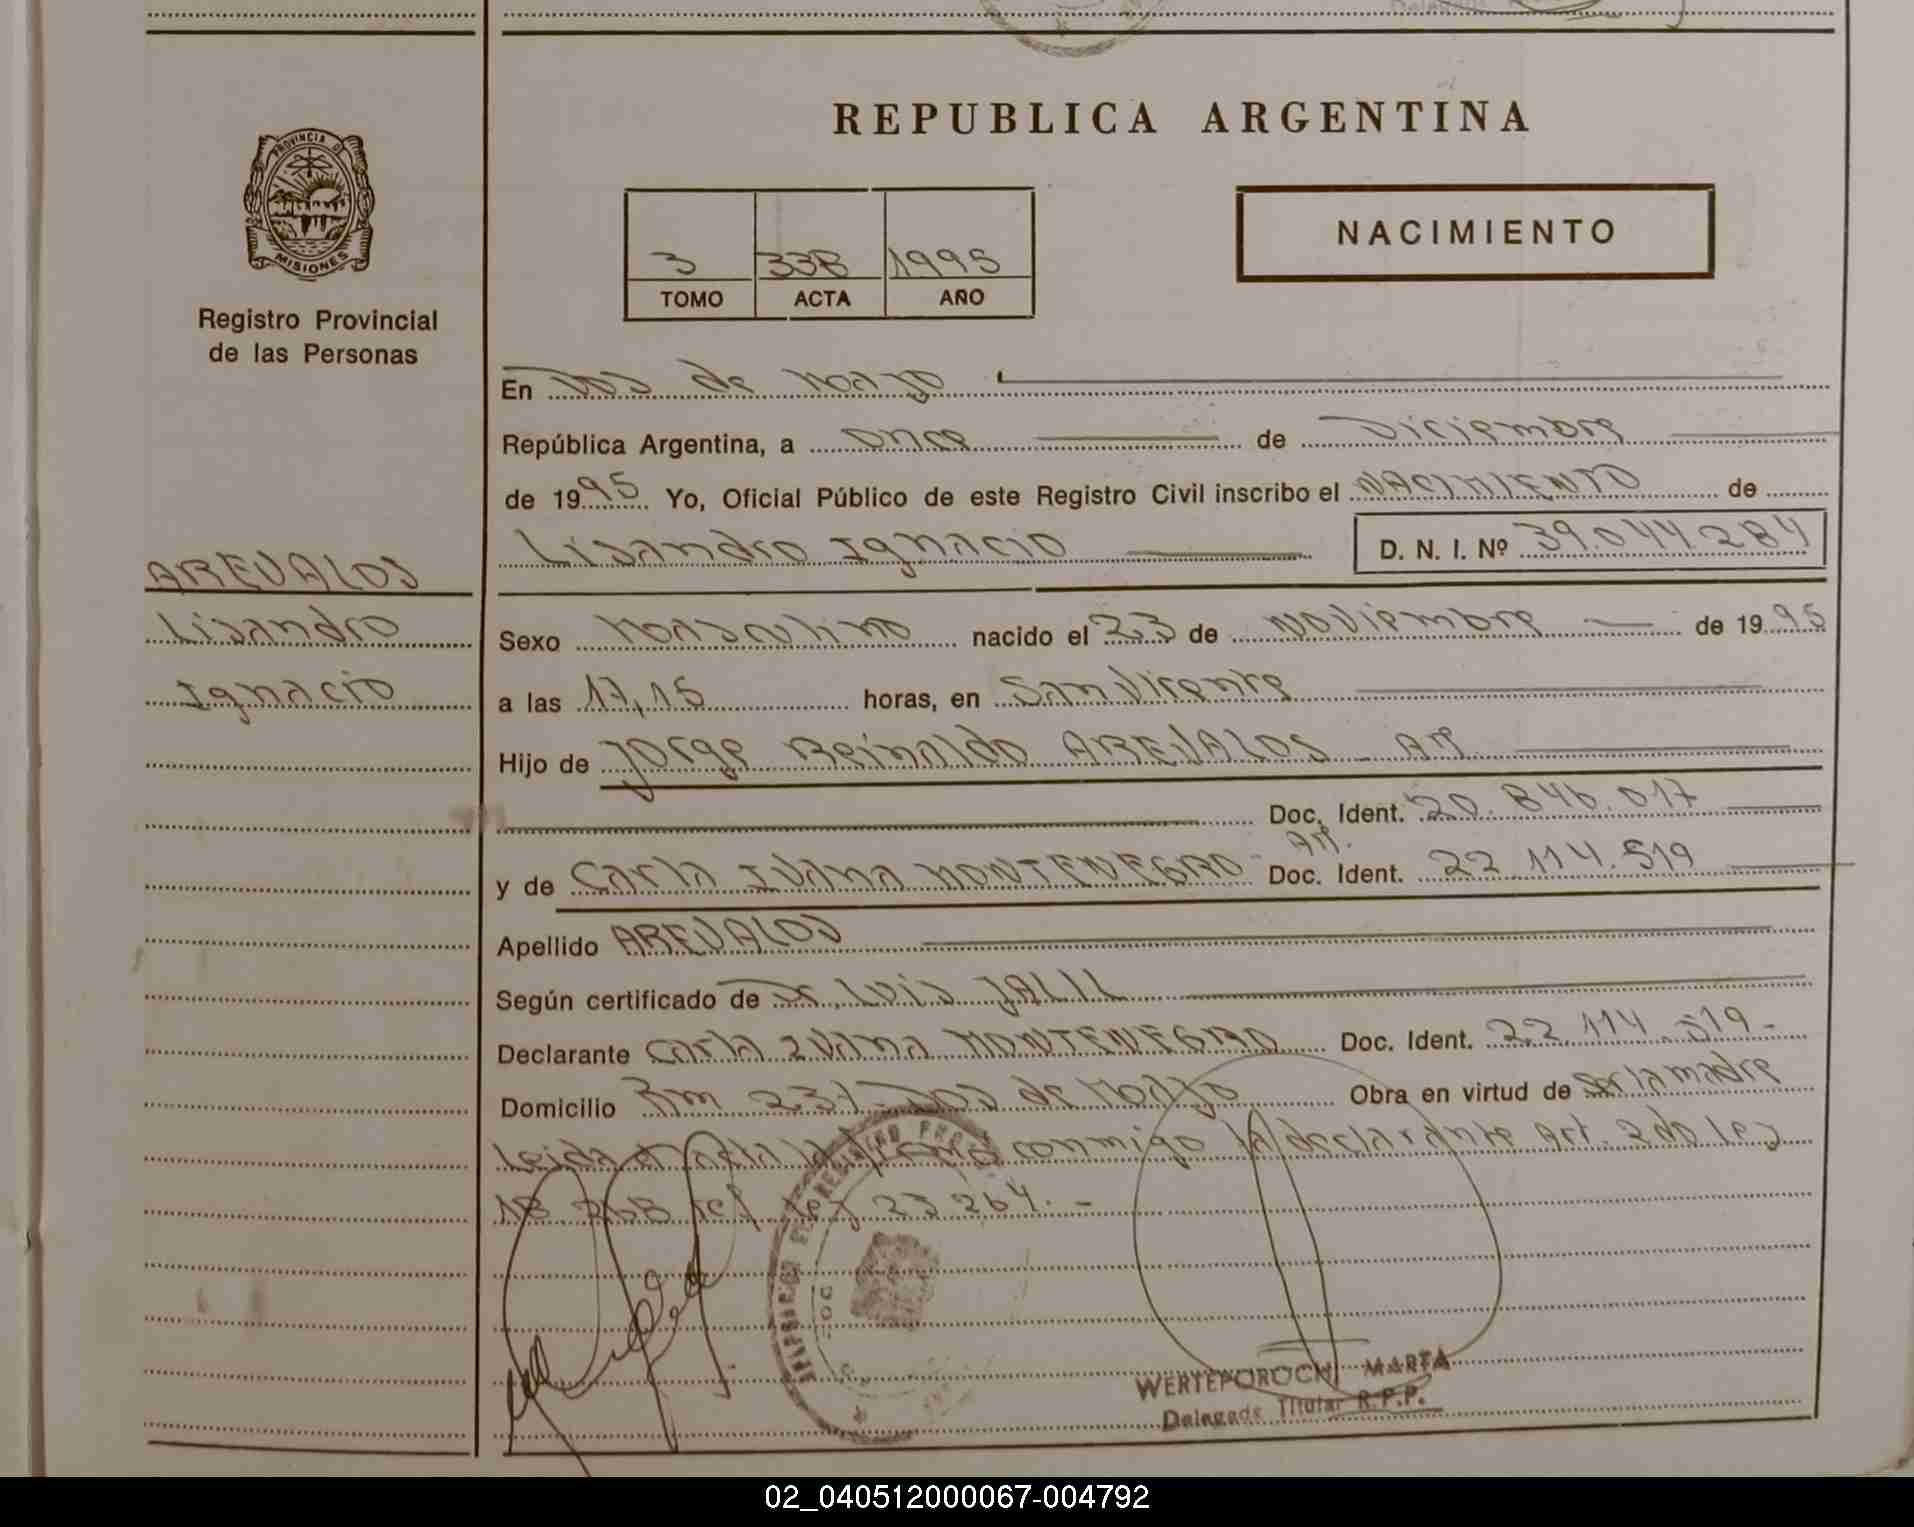 REPUBLICA ARGENTINA
PROVINCIA DE
MISIONES
Registro Provincial
de las Personas
NACIMIENTO
3 338 1995
TOMO ACTA AÑO
En Dos de Mayo
República Argentina, a once de Diciembre
de 1995 Yo, Oficial Público de este Registro Civil inscribo el NACIMIENTO de
Lisandro Ignacio D. N. I. Nº 39.044.284
AREVALOS
Lisandro
Ignacio
Sexo Masculino nacido el 23 de Noviembre de 1995
a las 17,15 horas, en San Vicente
Hijo de Jorge Reinaldo AREVALOS - Ar.
Doc. Ident. 20.846.017
y de Carla Ivana MONTENEGRO Ar. Doc. Ident. 22.114.519
Apellido AREVALOS
Según certificado de Dr. Luis JALIL
Declarante Carla Ivana MONTENEGRO Doc. Ident. 22.114.519-
Domicilio Km 237-Dos de Mayo Obra en virtud de Ser la madre
Leida el acta la conmigo la declarante Art. 2do Ley
18.268 ref Ley 23.264.-
WERTEPOROCH MARTA
Delegada Titular R.P.P.
02_040512000067-004792